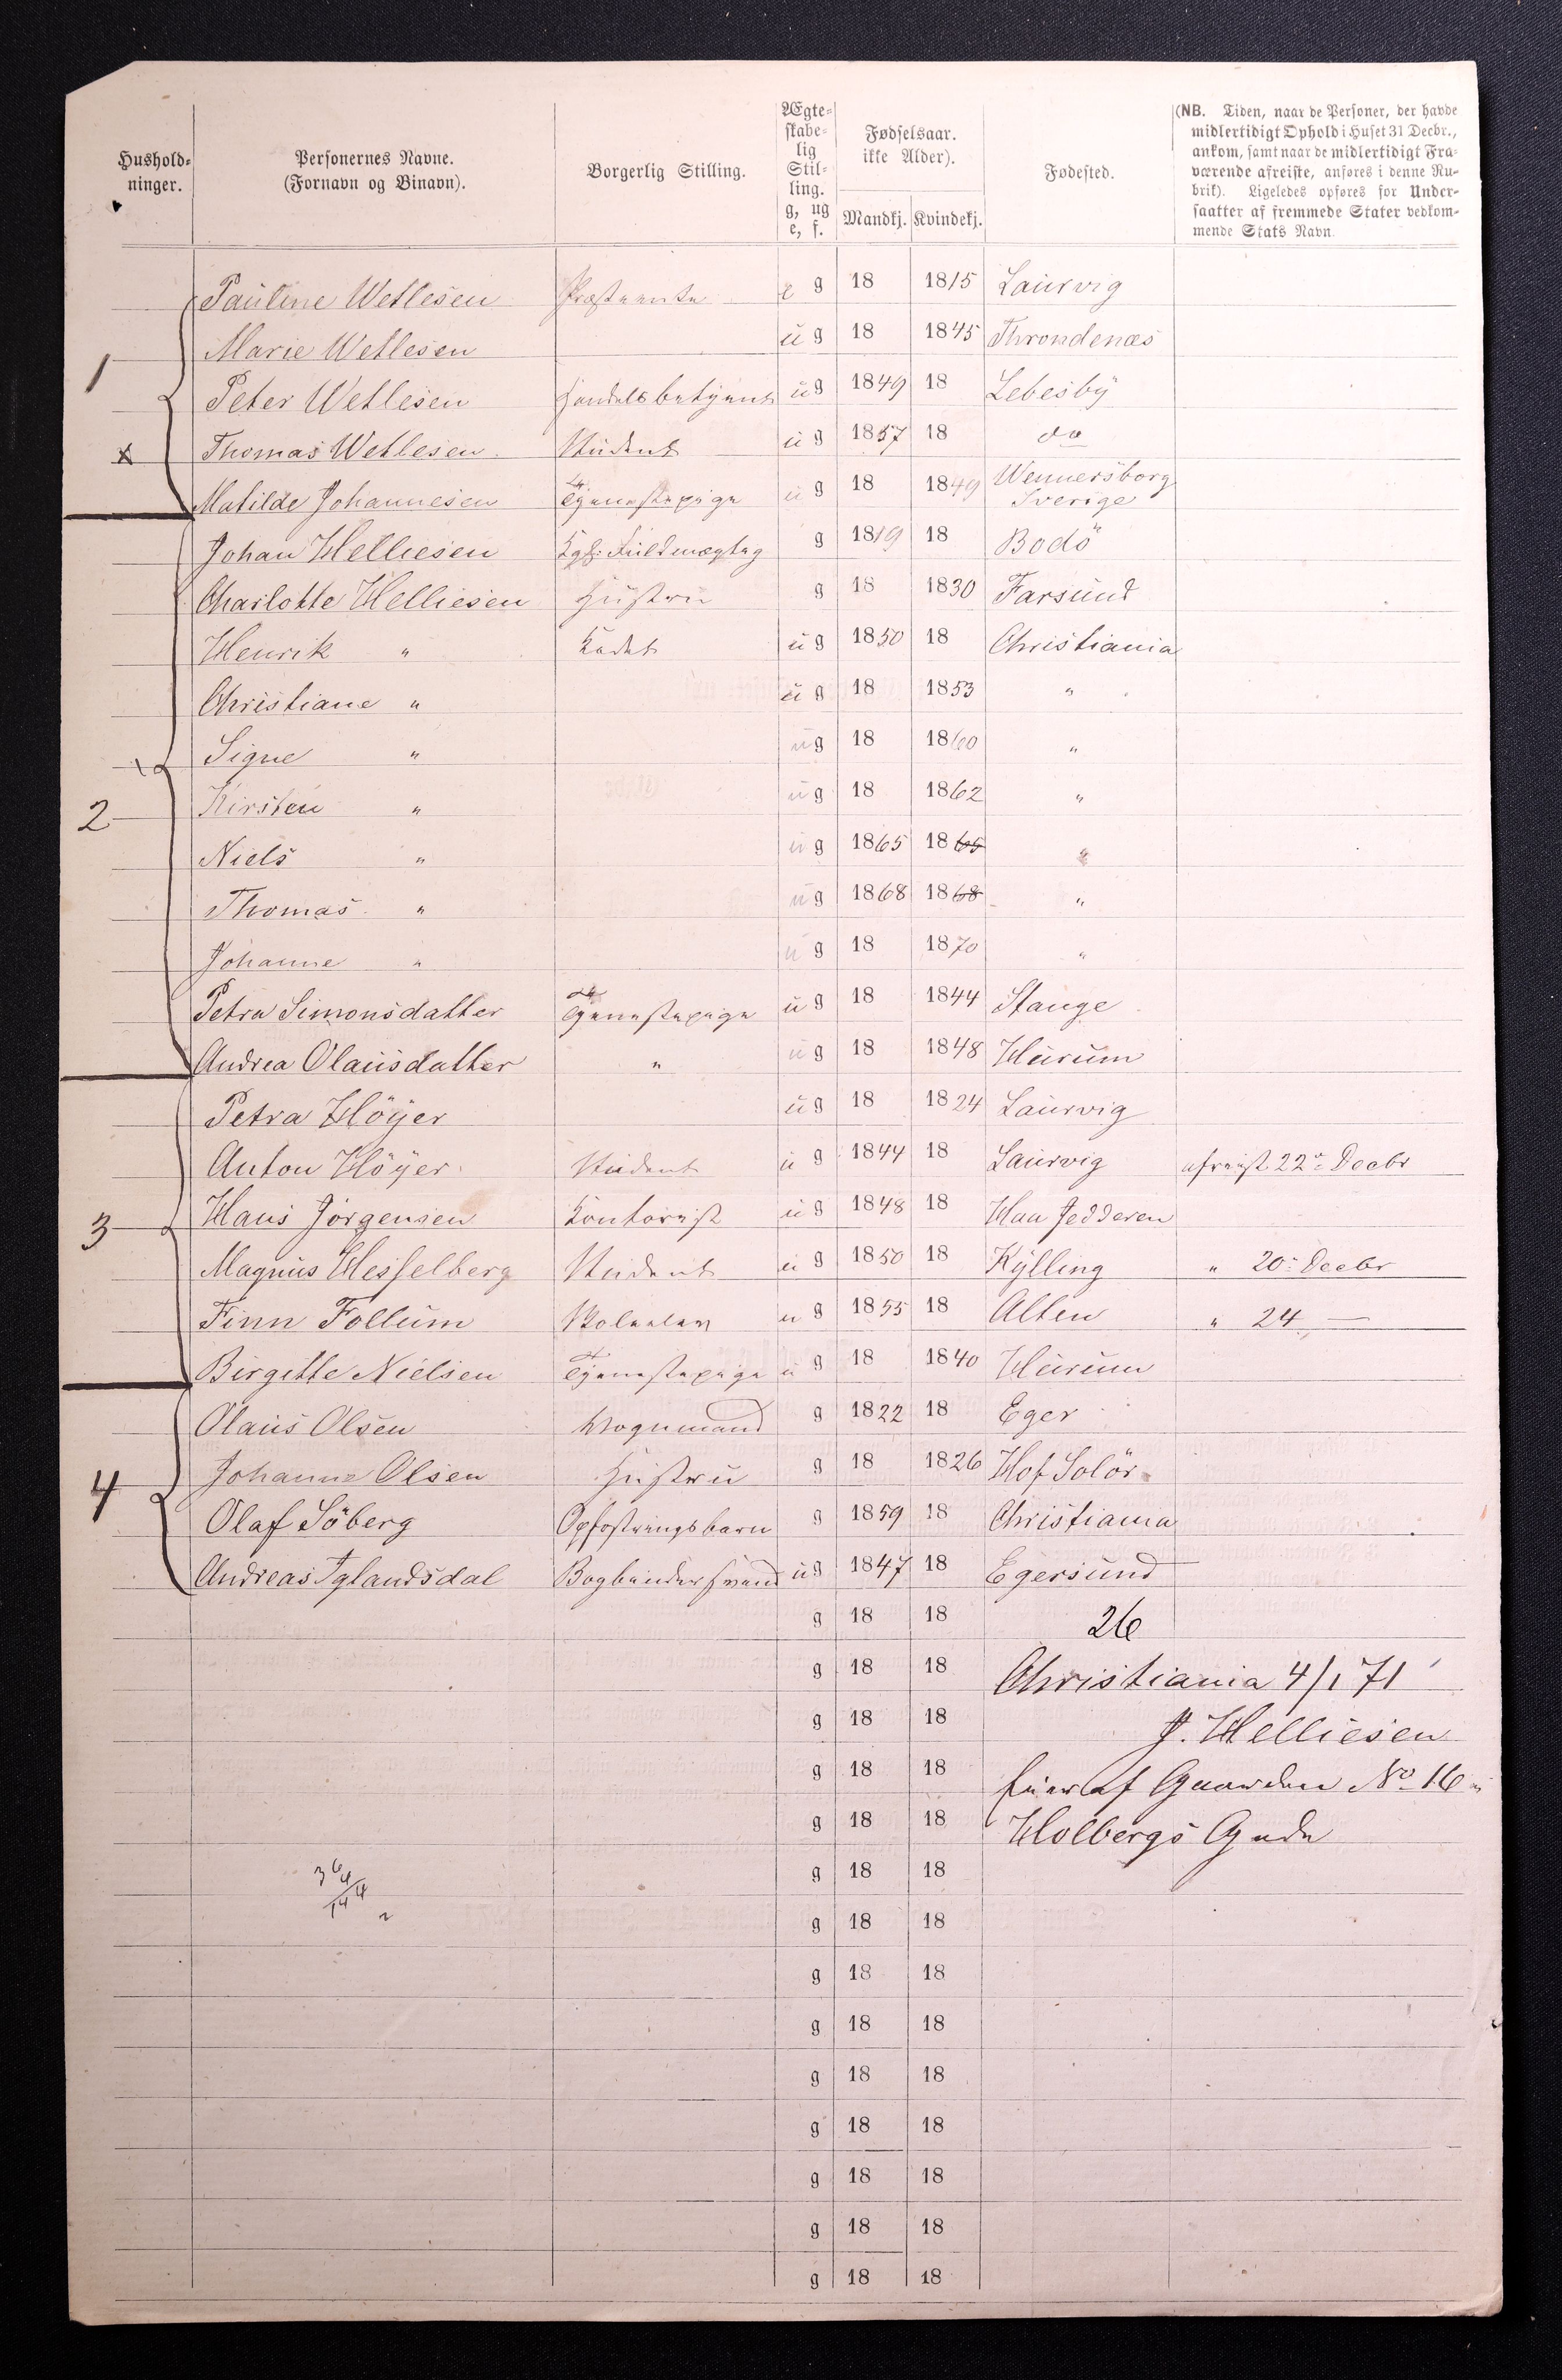 Hushold-
ninger.
Personernes Navne.
(Fornavn og Binavn).
Borgerlig Stilling.
Ægte-
skabe-
lig
Stil-
ling.
g, ug
e, f.
Fødselsaar.
ikke Alder).
Mandkj. Kvindekj.
Fødested.
(NB. Tiden, naar de Personer, der havde
midlertidigt Ophold i Huset 31 Decbr.,
ankom, samt naar de midlertidigt Fra-
værende afreiste, anføres i denne Ru-
brik). Ligeledes opføres for Under-
saatter af fremmede Stater vedkom-
mende Stats Navn.
Pauline Wetlesen Præsteenke e g 18 1815 Laurvig
1 Marie Wetlesen u g 18 1845 Throndenæs
Peter Wetlesen Handelsbetjent u g 1849 18 Lebesby
x Thomas Wetlesen Student u g 1857 18 do
Matilde Johannesen Tjenestepige u g 18 1849 Wennersborg
Sverige
Johan Helliesen Kgl. Fuldmægtig g 1819 18 Bodö
Charlotte Helliesen Hustru g 18 1830 Farsund
Henrik " Kadet u g 1850 18 Christiania
Christiane " u g 18 1853 "
Signe " u g 18 1860 "
2 Kirsten " u g 18 1862 "
Niels " u g 1865 18 65 "
Thomas " u g 1868 18 68 "
Johanne " u g 18 1870 "
Petra Simonsdatter Tjenestepige u g 18 1844 Stange
Andrea Olausdatter " u g 18 1848 Hurum
Petra Höyer u g 18 1824 Laurvig
Anton Höyer Student u g 1844 18 Laurvig afreist 22 Decbr
3 Hans Jörgensen Kontorist u g 1848 18 Haa Jedderen
Magnus Hesselberg Student u g 1850 18 Kylling " 20 Decbr
Finn Follum Skoleelev u g 1855 18 Alten " 24 —
Birgitte Nielsen Tjenestepige u g 18 1840 Hurum
Olaus Olsen Vognmand g 1822 18 Eger
4 Johanne Olsen Hustru g 18 1826 Hof Solör
Olaf Söberg Opfostringsbarn g 1859 18 Christiania
Andreas Iglandsdal Bogbindersvend u g 1847 18 Egersund
g 18 18 26
g 18 18 Christiania 4/1 71
g 18 18 J. Helliesen
g 18 18 Eier af Gaarden No 16
g 18 18 Holbergs Gade
g 18 18
g 18 18
g 18 18
g 18 18
g 18 18
g 18 18
g 18 18
g 18 18
g 18 18